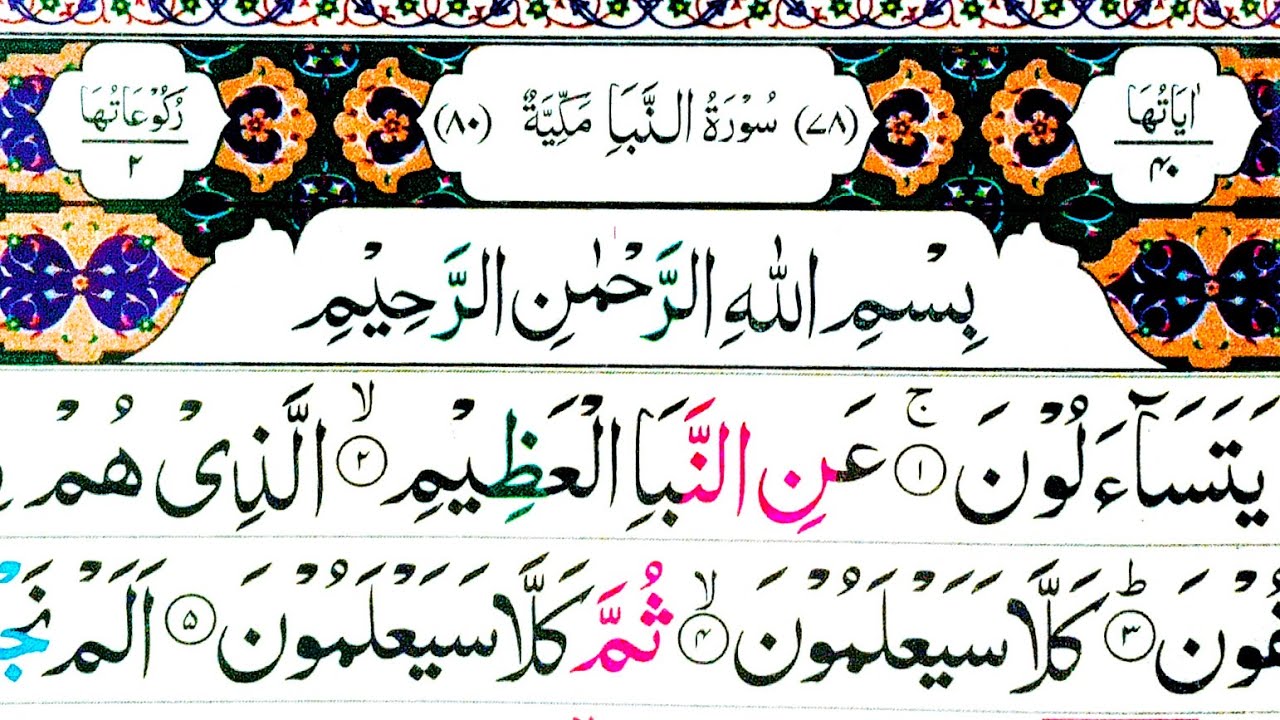 اٰيَاتُهَا
۴۰
(۷۸) سُوْرَةُ النَّبَاِ مَكِّيَّةٌ (۸۰)
رُكُوْعَاتُهَا
۲
بِسْمِ اللهِ الرَّحْمٰنِ الرَّحِيْمِ
يَتَسَآءَلُوْنَ ۚ ۱ عَنِ النَّبَاِ الْعَظِيْمِ ۙ ۲ الَّذِىْ هُمْ
كَلَّا سَيَعْلَمُوْنَ ۙ ۴ ثُمَّ كَلَّا سَيَعْلَمُوْنَ ۵ اَلَمْ